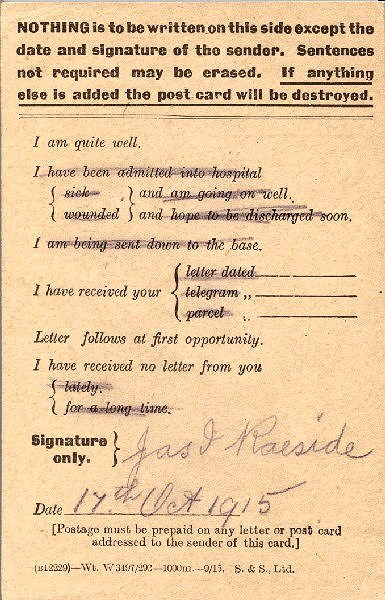 NOTHING is to be written on this side except the
date and signature of the sender. Sentences
not required may be erased. If anything
else is added the post card will be destroyed.
I am quite well.
I have been admitted into hospital
{ sick } and am going on well.
{ wounded } and hope to be discharged soon.
I am being sent down to the base.
I have received your { letter dated
telegram ,,
parcel ,,
Letter follows at first opportunity.
I have received no letter from you
{ lately.
{ for a long time.
Signature only. } Jas I Raeside
Date 17th Oct 1915
[Postage must be prepaid on any letter or post card
addressed to the sender of this card.]
(B12229)—Wt. W3497/293—1000m.—9/15. S. & S., Ltd.